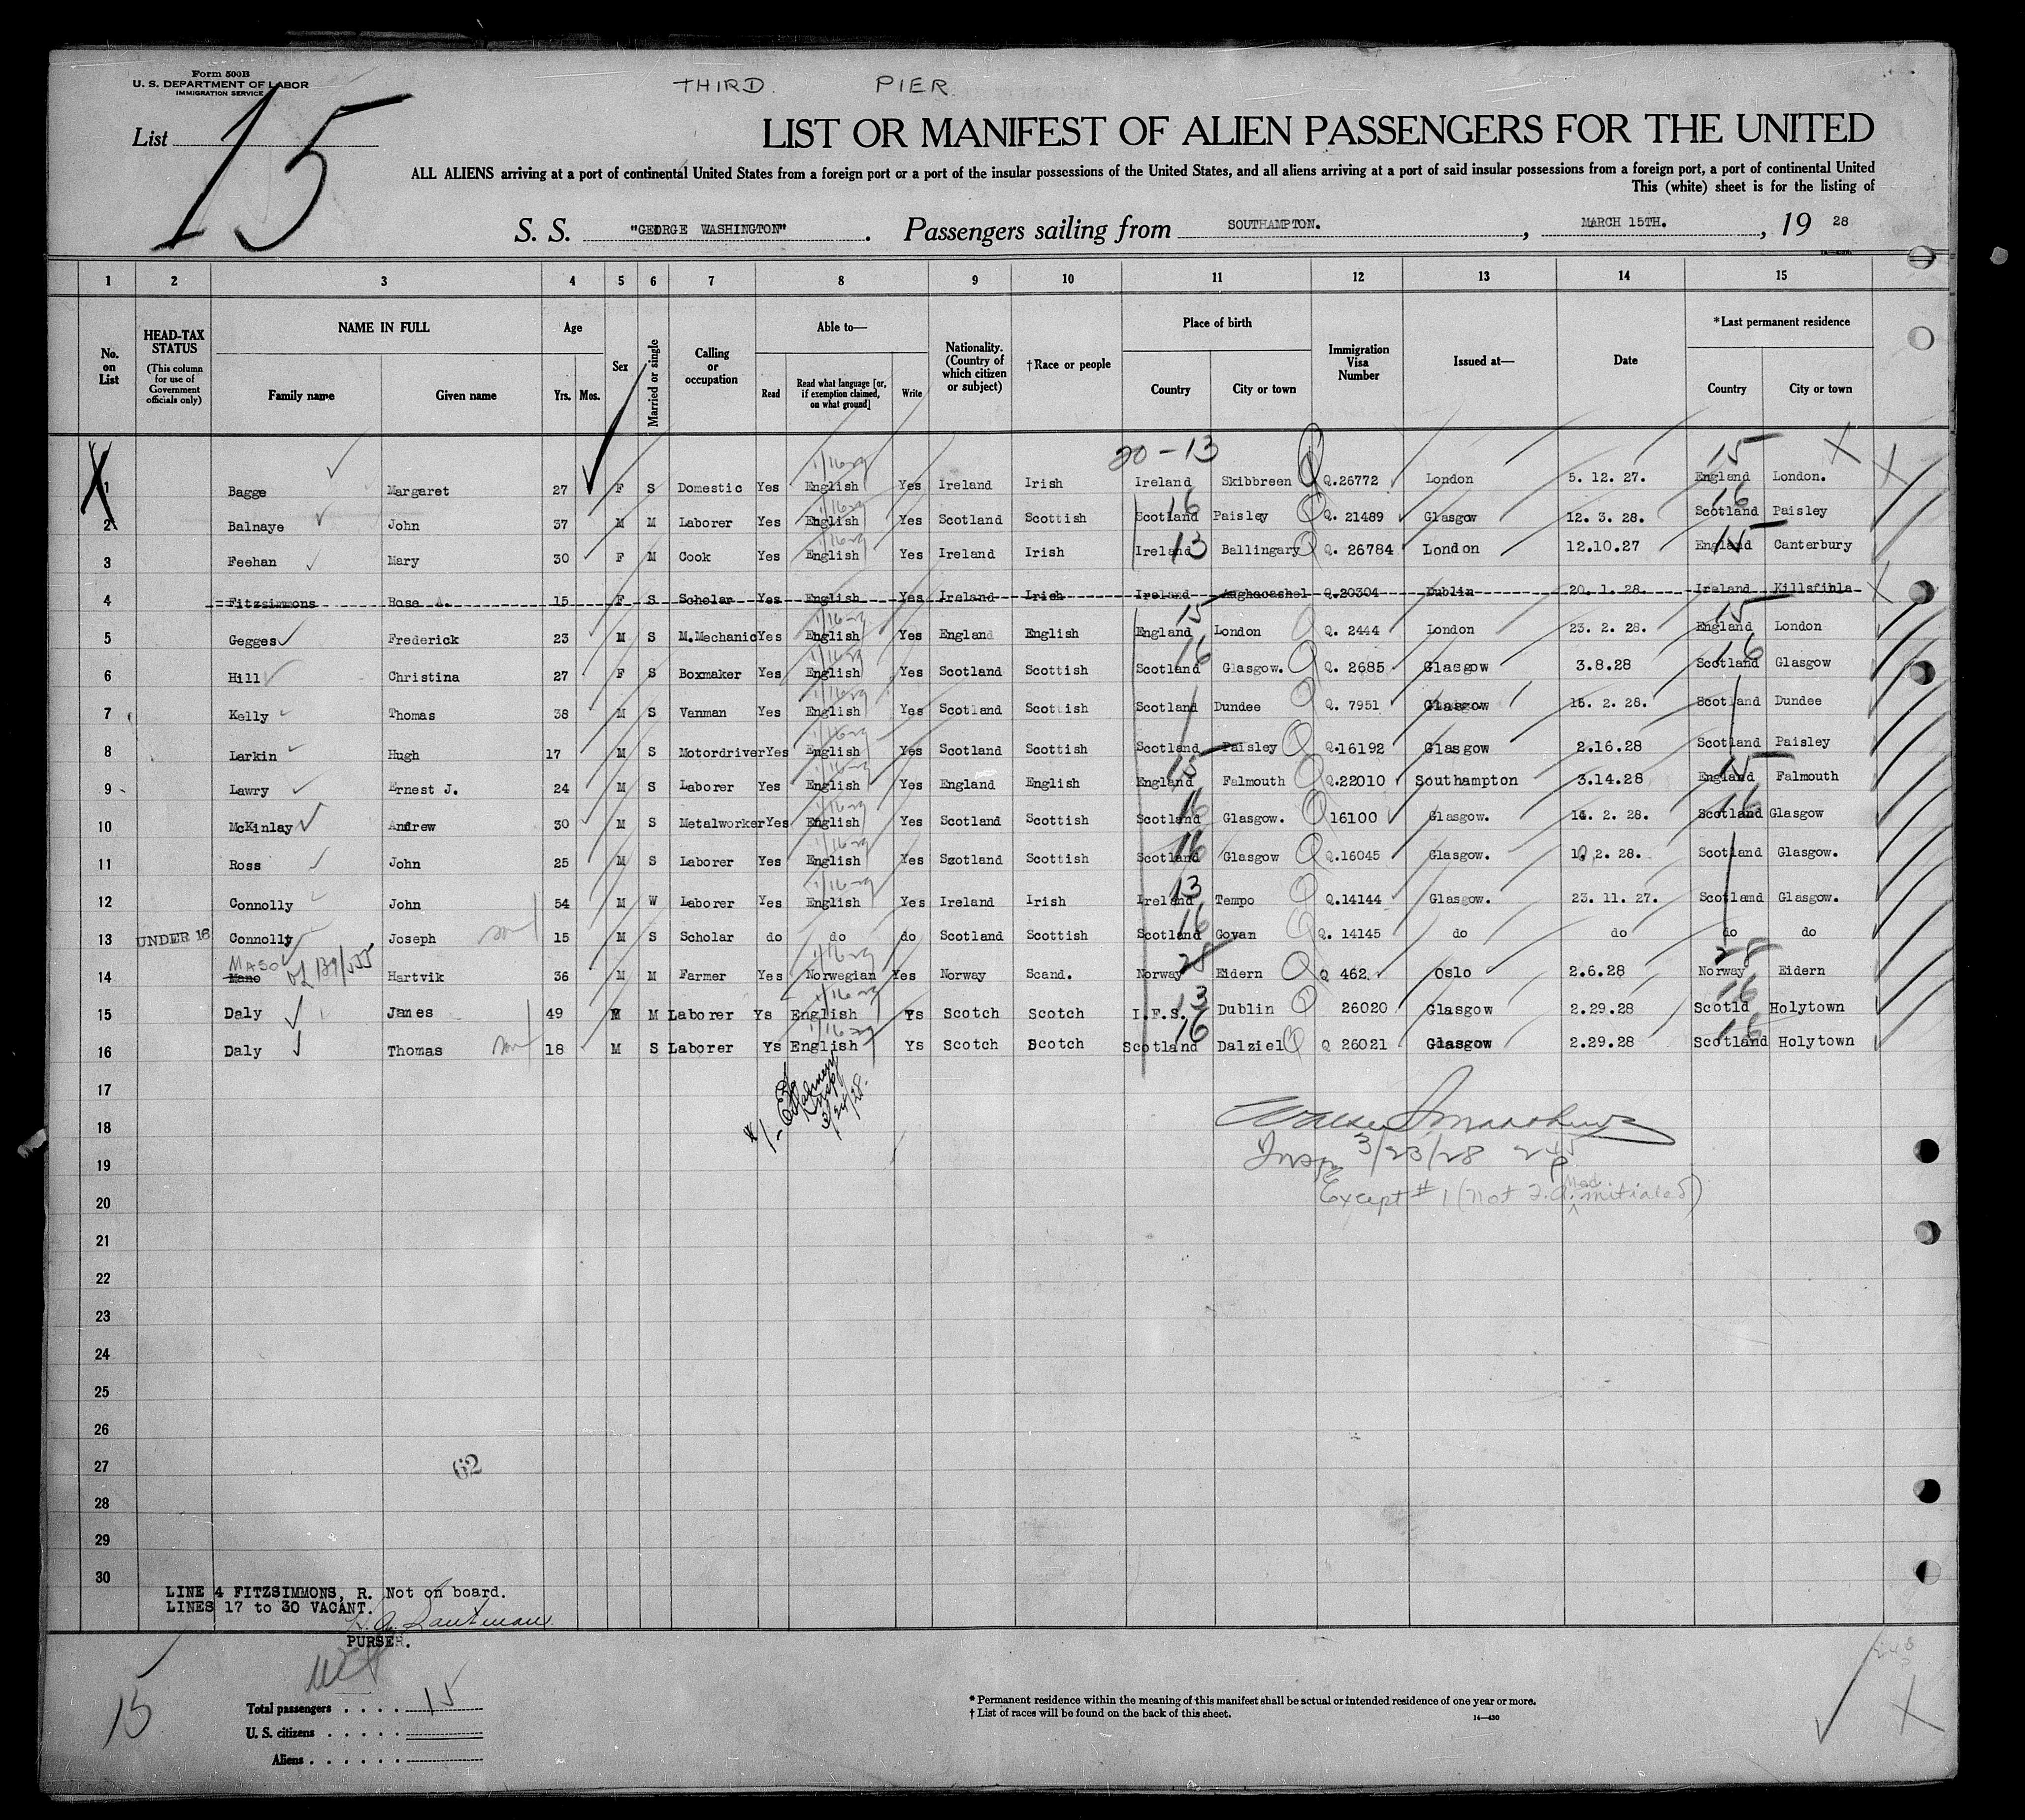 Form 500B
U. S. DEPARTMENT OF LABOR
IMMIGRATION SERVICE
THIRD. PIER.
List 15
LIST OR MANIFEST OF ALIEN PASSENGERS FOR THE UNITED
ALL ALIENS arriving at a port of continental United States from a foreign port or a port of the insular possessions of the United States, and all aliens arriving at a port of said insular possessions from a foreign port, a port of continental United
This (white) sheet is for the listing of
S. S. "GEORGE WASHINGTON" . Passengers sailing from SOUTHAMPTON. , MARCH 15TH. , 19 28
1 2 3 4 5 6 7 8 9 10 11 12 13 14 15
No. on List HEAD-TAX STATUS (This column for use of Government officials only) NAME IN FULL Family name Given name Age Yrs. Mos. Sex Married or single Calling or occupation Able to— Read Read what language [or, if exemption claimed, on what ground] Write Nationality. (Country of which citizen or subject) †Race or people Place of birth Country City or town Immigration Visa Number Issued at— Date *Last permanent residence Country City or town
20-13 15
1 Bagge Margaret 27 F S Domestic Yes English Yes Ireland Irish Ireland Skibbreen Q.26772 London 5. 12. 27. England London.
16 16
2 Balnaye John 37 M M Laborer Yes English Yes Scotland Scottish Scotland Paisley Q. 21489 Glasgow 12. 3. 28. Scotland Paisley
13 15
3 Feehan Mary 30 F M Cook Yes English Yes Ireland Irish Ireland Ballingary Q. 26784 London 12.10.27 England Canterbury
4 Fitzsimmons Rose A. 15 F S Scholar Yes English Yes Ireland Irish Ireland Aughacashel Q.20304 Dublin 20. 1. 28. Ireland Killsfihla
15 15
5 Gegges Frederick 23 M S M.Mechanic Yes English Yes England English England London Q. 2444 London 23. 2. 28. England London
16 16
6 Hill Christina 27 F S Boxmaker Yes English Yes Scotland Scottish Scotland Glasgow. Q. 2685 Glasgow 3.8.28 Scotland Glasgow
7 Kelly Thomas 38 M S Vanman Yes English Yes Scotland Scottish Scotland Dundee Q. 7951 Glasgow 15. 2. 28. Scotland Dundee
8 Larkin Hugh 17 M S Motordriver Yes English Yes Scotland Scottish Scotland Paisley Q.16192 Glasgow 2.16.28 Scotland Paisley
15 15
9 Lawry Ernest J. 24 M S Laborer Yes English Yes England English England Falmouth Q.22010 Southampton 3.14.28 England Falmouth
16 16
10 McKinlay Andrew 30 M S Metalworker Yes English Yes Scotland Scottish Scotland Glasgow. 16100 Glasgow. 14. 2. 28. Scotland Glasgow
16
11 Ross John 25 M S Laborer Yes English Yes Szotland Scottish Scotland Glasgow Q.16045 Glasgow. 10. 2. 28. Scotland Glasgow.
13
12 Connolly John 54 M W Laborer Yes English Yes Ireland Irish Ireland Tempo Q.14144 Glasgow. 23. 11. 27. Scotland Glasgow.
16
13 UNDER 16 Connolly Joseph son 15 M S Scholar do do do Scotland Scottish Scotland Govan Q. 14145 do do do do
MASO 28 28
14 Mano Hartvik 36 M M Farmer Yes Norwegian Yes Norway Scand. Norway Eidern Q 462. Oslo 2.6.28 Norway Eidern
13 16
15 Daly James 49 M M Laborer Ys English Ys Scotch Scotch I.F.S. Dublin 26020 Glasgow 2.29.28 Scotld Holytown
16 16
16 Daly Thomas son 18 M S Laborer Ys English Ys Scotch Scotch Scotland Dalziel Q 26021 Glasgow 2.29.28 Scotland Holytown
17
18
Insp 3/23/28
19
Except #1 (not Med. initialed)
20
21
22
23
24
25
26
27
62
28
29
30
LINE 4 FITZSIMMONS, R. Not on board.
LINES 17 to 30 VACANT.
PURSER.
15
Total passengers . . . . 15
U. S. citizens . . . . .
Aliens . . . . . .
* Permanent residence within the meaning of this manifest shall be actual or intended residence of one year or more.
† List of races will be found on the back of this sheet.
14—430